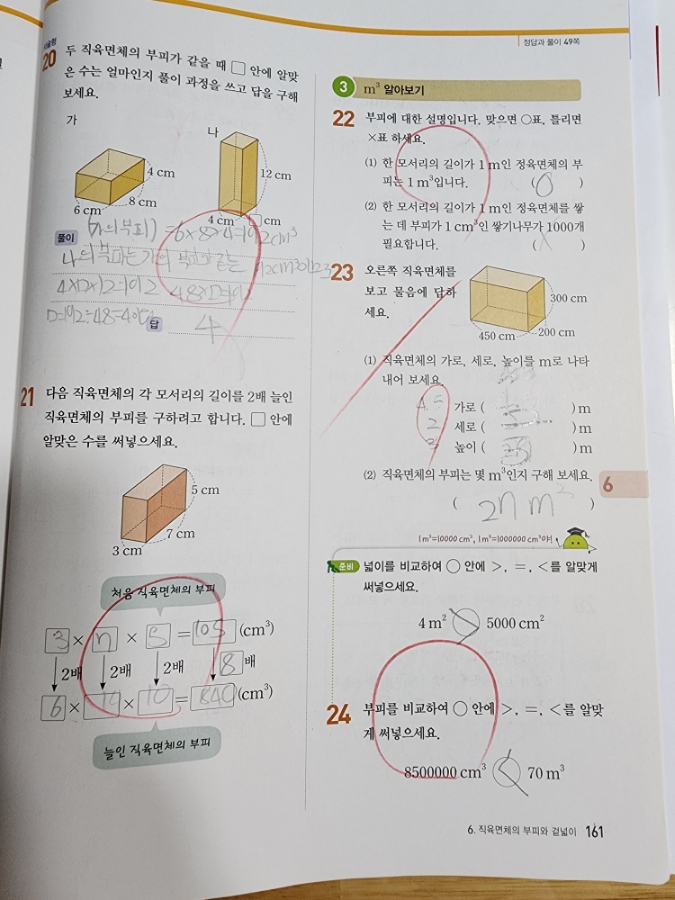 정답과 풀이 49쪽
서술형
20 두 직육면체의 부피가 같을 때 □ 안에 알맞
은 수는 얼마인지 풀이 과정을 쓰고 답을 구해
보세요.
가
나
4 cm
8 cm
6 cm
12 cm
4 cm
cm
풀이
=6×8×4=192cm³
나의 부피는 가의
4×□×12=192 48×□=192
□=192÷48=4
답 4
21 다음 직육면체의 각 모서리의 길이를 2배 늘인
직육면체의 부피를 구하려고 합니다. □ 안에
알맞은 수를 써넣으세요.
5 cm
7 cm
3 cm
처음 직육면체의 부피
3 × 7 × 5 = 105 (cm³)
2배 2배 2배 8 배
6 × 14 × 10 = 840 (cm³)
늘인 직육면체의 부피
3 m³ 알아보기
22 부피에 대한 설명입니다. 맞으면 ○표, 틀리면
×표 하세요.
(1) 한 모서리의 길이가 1 m인 정육면체의 부
피는 1 m³입니다. ( O )
(2) 한 모서리의 길이가 1 m인 정육면체를 쌓
는 데 부피가 1 cm³인 쌓기나무가 1000개
필요합니다. ( )
23 오른쪽 직육면체를
보고 물음에 답하
세요.
300 cm
200 cm
450 cm
(1) 직육면체의 가로, 세로, 높이를 m로 나타
내어 보세요.
가로 ( )m
세로 ( )m
높이 ( )m
(2) 직육면체의 부피는 몇 m³인지 구해 보세요.
( 27 m³ )
1 m²=10000 cm², 1 m³=1000000 cm³이야!
준비 넓이를 비교하여 ○ 안에 >, =, <를 알맞게
써넣으세요.
4 m² 5000 cm²
24 부피를 비교하여 ○ 안에 >, =, <를 알맞
게 써넣으세요.
8500000 cm³ < 70 m³
6
6. 직육면체의 부피와 겉넓이 161